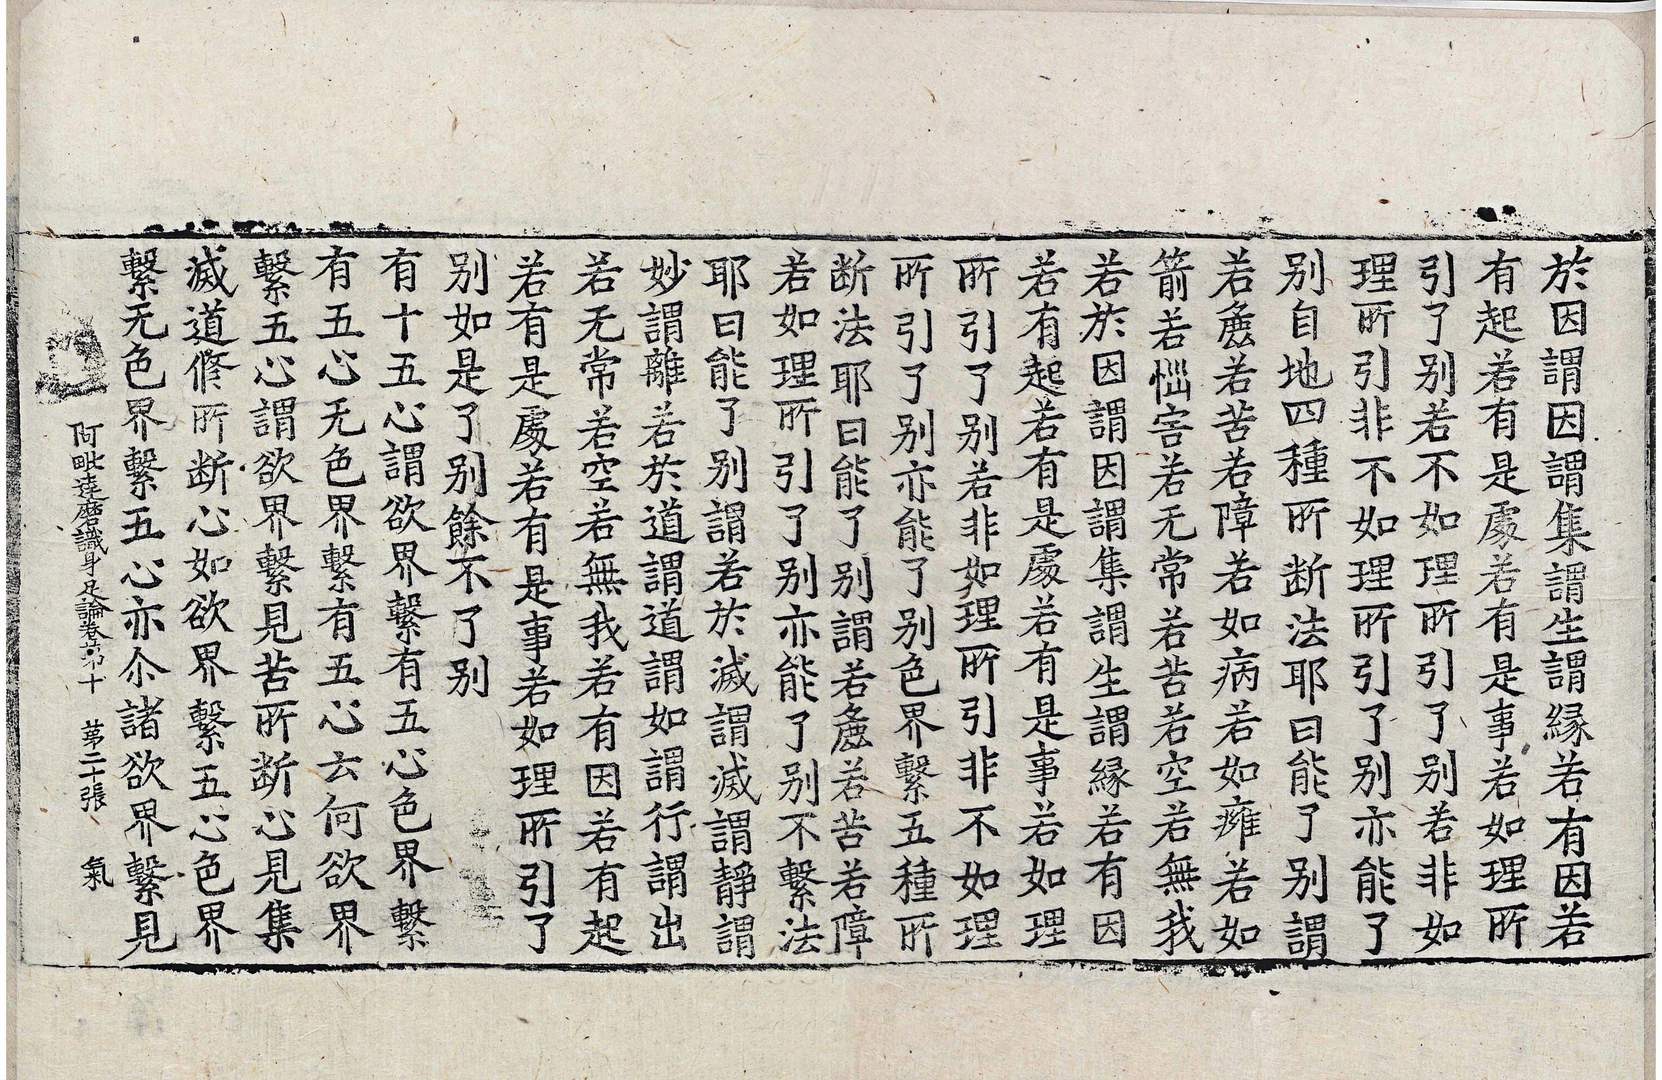 於因謂因謂集謂生謂縁若有因若
有起若有是處若有是事若如理所
引了别若不如理所引了别若非如
理所引非不如理所引了别亦能了
别自地四種所断法耶曰能了别謂
若麁若苦若障若如病若如癕若如
箭若惱害若无常若苦若空若無我
若於因謂因謂集謂生謂縁若有因
若有起若有是處若有是事若如理
所引了别若非如理所引非不如理
所引了别亦能了别色界繫五種所
断法耶曰能了别謂若麁若苦若障
若如理所引了别亦能了别不繫法
耶曰能了别謂若於滅謂滅謂静謂
妙謂離若於道謂道謂如謂行謂出
若无常若空若無我若有因若有起
若有是處若有是事若如理所引了
别如是了别餘不了别
有十五心謂欲界繫有五心色界繫
有五心无色界繫有五心云何欲界
繫五心謂欲界繫見苦所断心見集
滅道修所断心如欲界繫五心色界
繫无色界繫五心亦尒諸欲界繫見
阿毗達磨識身足論卷第十 第二十張 氣